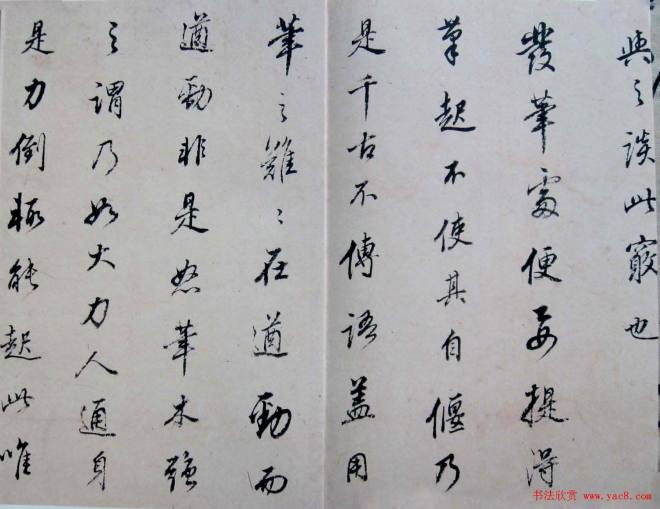 與之談此竅也
發筆處便要提得
筆起不使其自偃乃
是千古不傳語蓋用
筆之難難在遒勁而
遒勁非是怒筆木強
之謂乃如大力人通身
是力倒輒能起此惟
书法欣赏 www.yac8.com